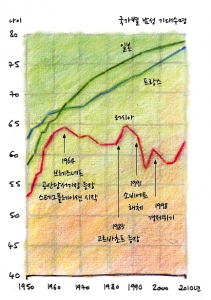 나이
국가별 남성 기대수명
80
일본
75
프랑스
70
러시아
65
1964
브레즈네프
공산당서기장 등장
스태그플레이션 시작
60
1991
소비에트
해체
1998
경제위기
55
1985
고르바초프 등장
50
45
40
1950
1960
1970
1980
1990
2000
2010년